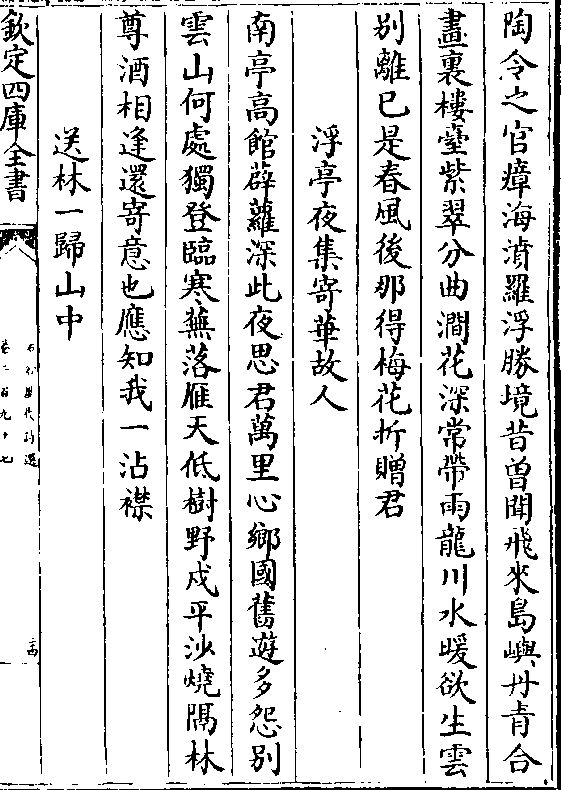 陶令之官瘴海濆羅浮勝境昔曾聞飛來島嶼丹青合
畫裏樓臺紫翠分曲澗花深常帶雨龍川水暖欲生雲
别離已是春風後那得梅花折贈君
浮亭夜集寄華故人
南亭高館薜蘿深此夜思君萬里心鄉國舊遊多怨别
雲山何處獨登臨寒蕪落雁天低樹野戍平沙燒隔林
尊酒相逢還寄意也應知我一沾襟
送林一歸山中
欽定四庫全書
石倉歴代詩選
卷二百九十七